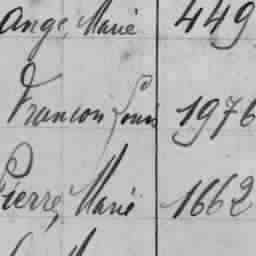 ange, Marie 449
Francon Louis 1976
Pierre, Marie 1662